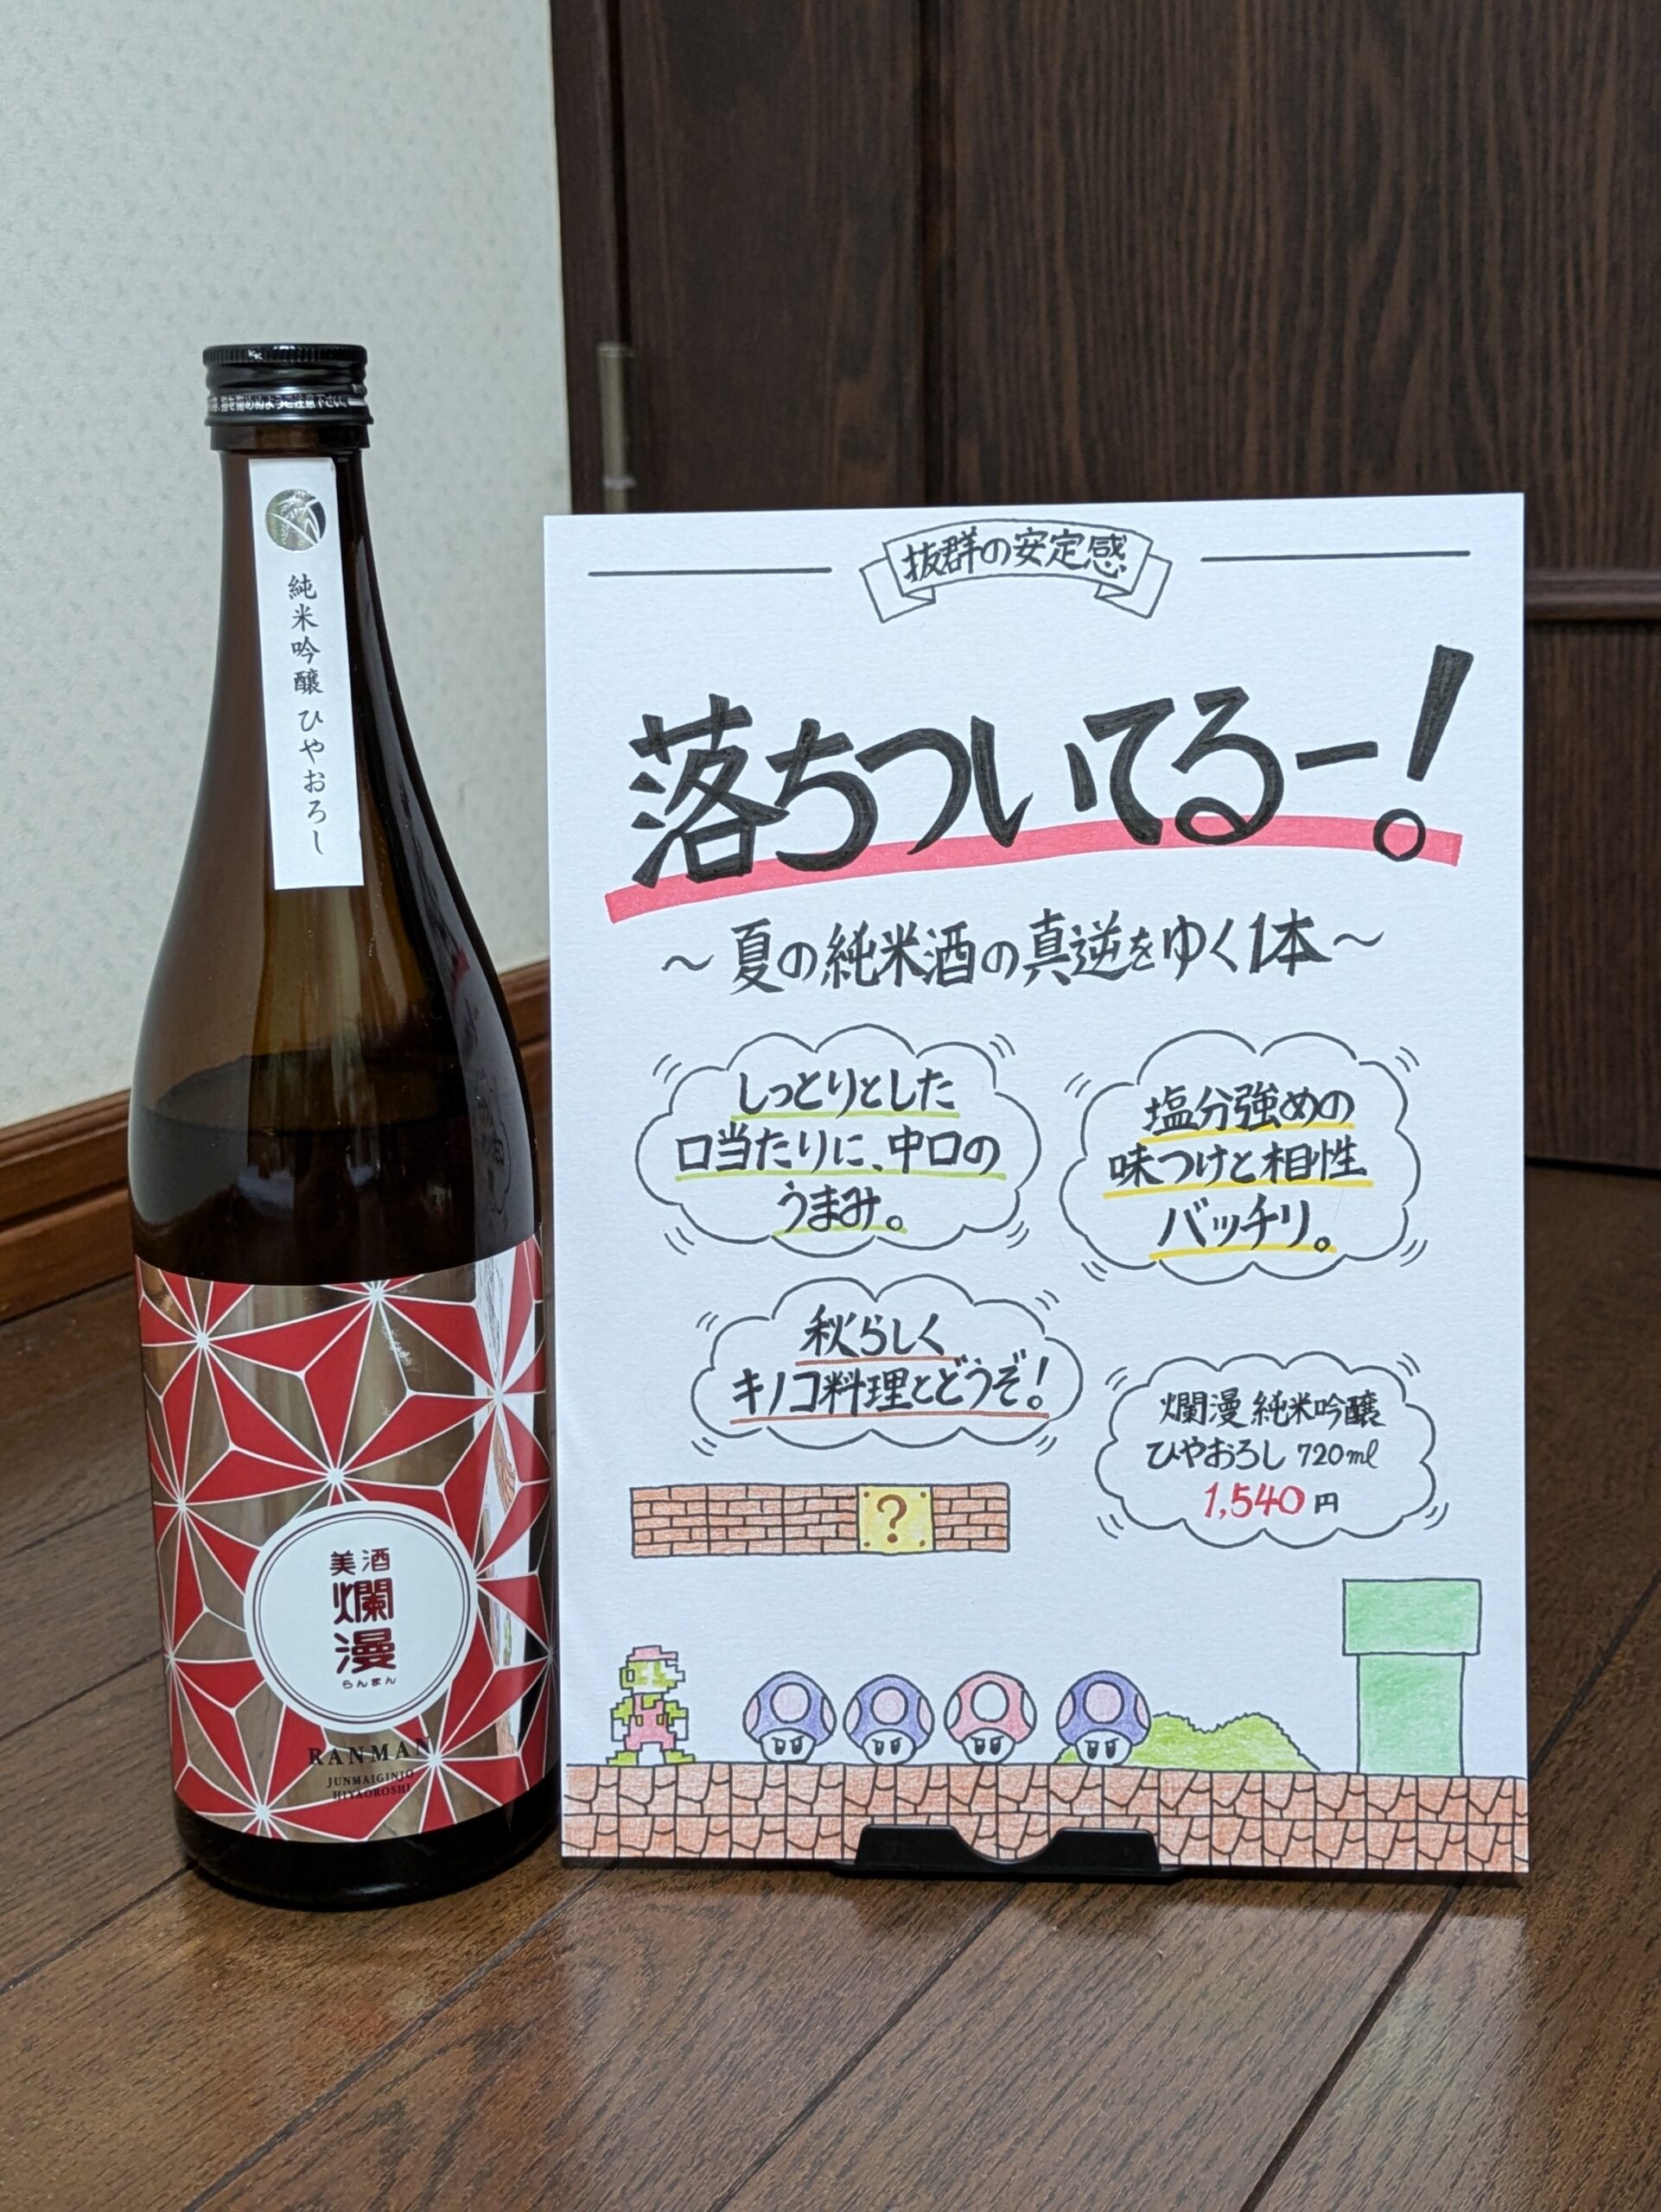 純米吟醸 ひやおろし
美酒
爛漫
らんまん
RANMAN
JUNMAIGINJO
HIYAOROSHI
抜群の安定感
落ちついてるー!
～夏の純米酒の真逆をゆく1本～
しっとりとした
口当たりに、中口の
うまみ。
塩分強めの
味つけと相性
バッチリ。
秋らしく
キノコ料理とどうぞ!
爛漫 純米吟醸
ひやおろし 720ml
1,540円
?